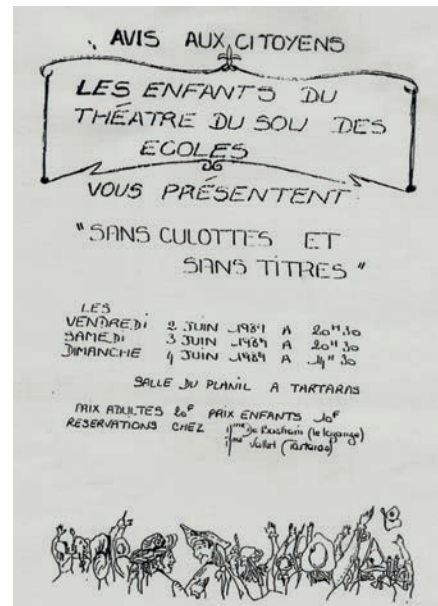 AVIS AUX CITOYENS
LES ENFANTS DU
THÉATRE DU SOU DES
ECOLES
VOUS PRÉSENTENT
"SANS CULOTTES ET
SANS TITRES"
LES
VENDREDI 2 JUIN 1989 A 20H30
SAMEDI 3 JUIN 1989 A 20H30
DIMANCHE 4 JUIN 1989 A 14H30
SALLE DU PLANIL A TARTARAS
PRIX ADULTES 20F PRIX ENFANTS 10F
RESERVATIONS CHEZ Mme De
Mme Vallet (Tartaras)